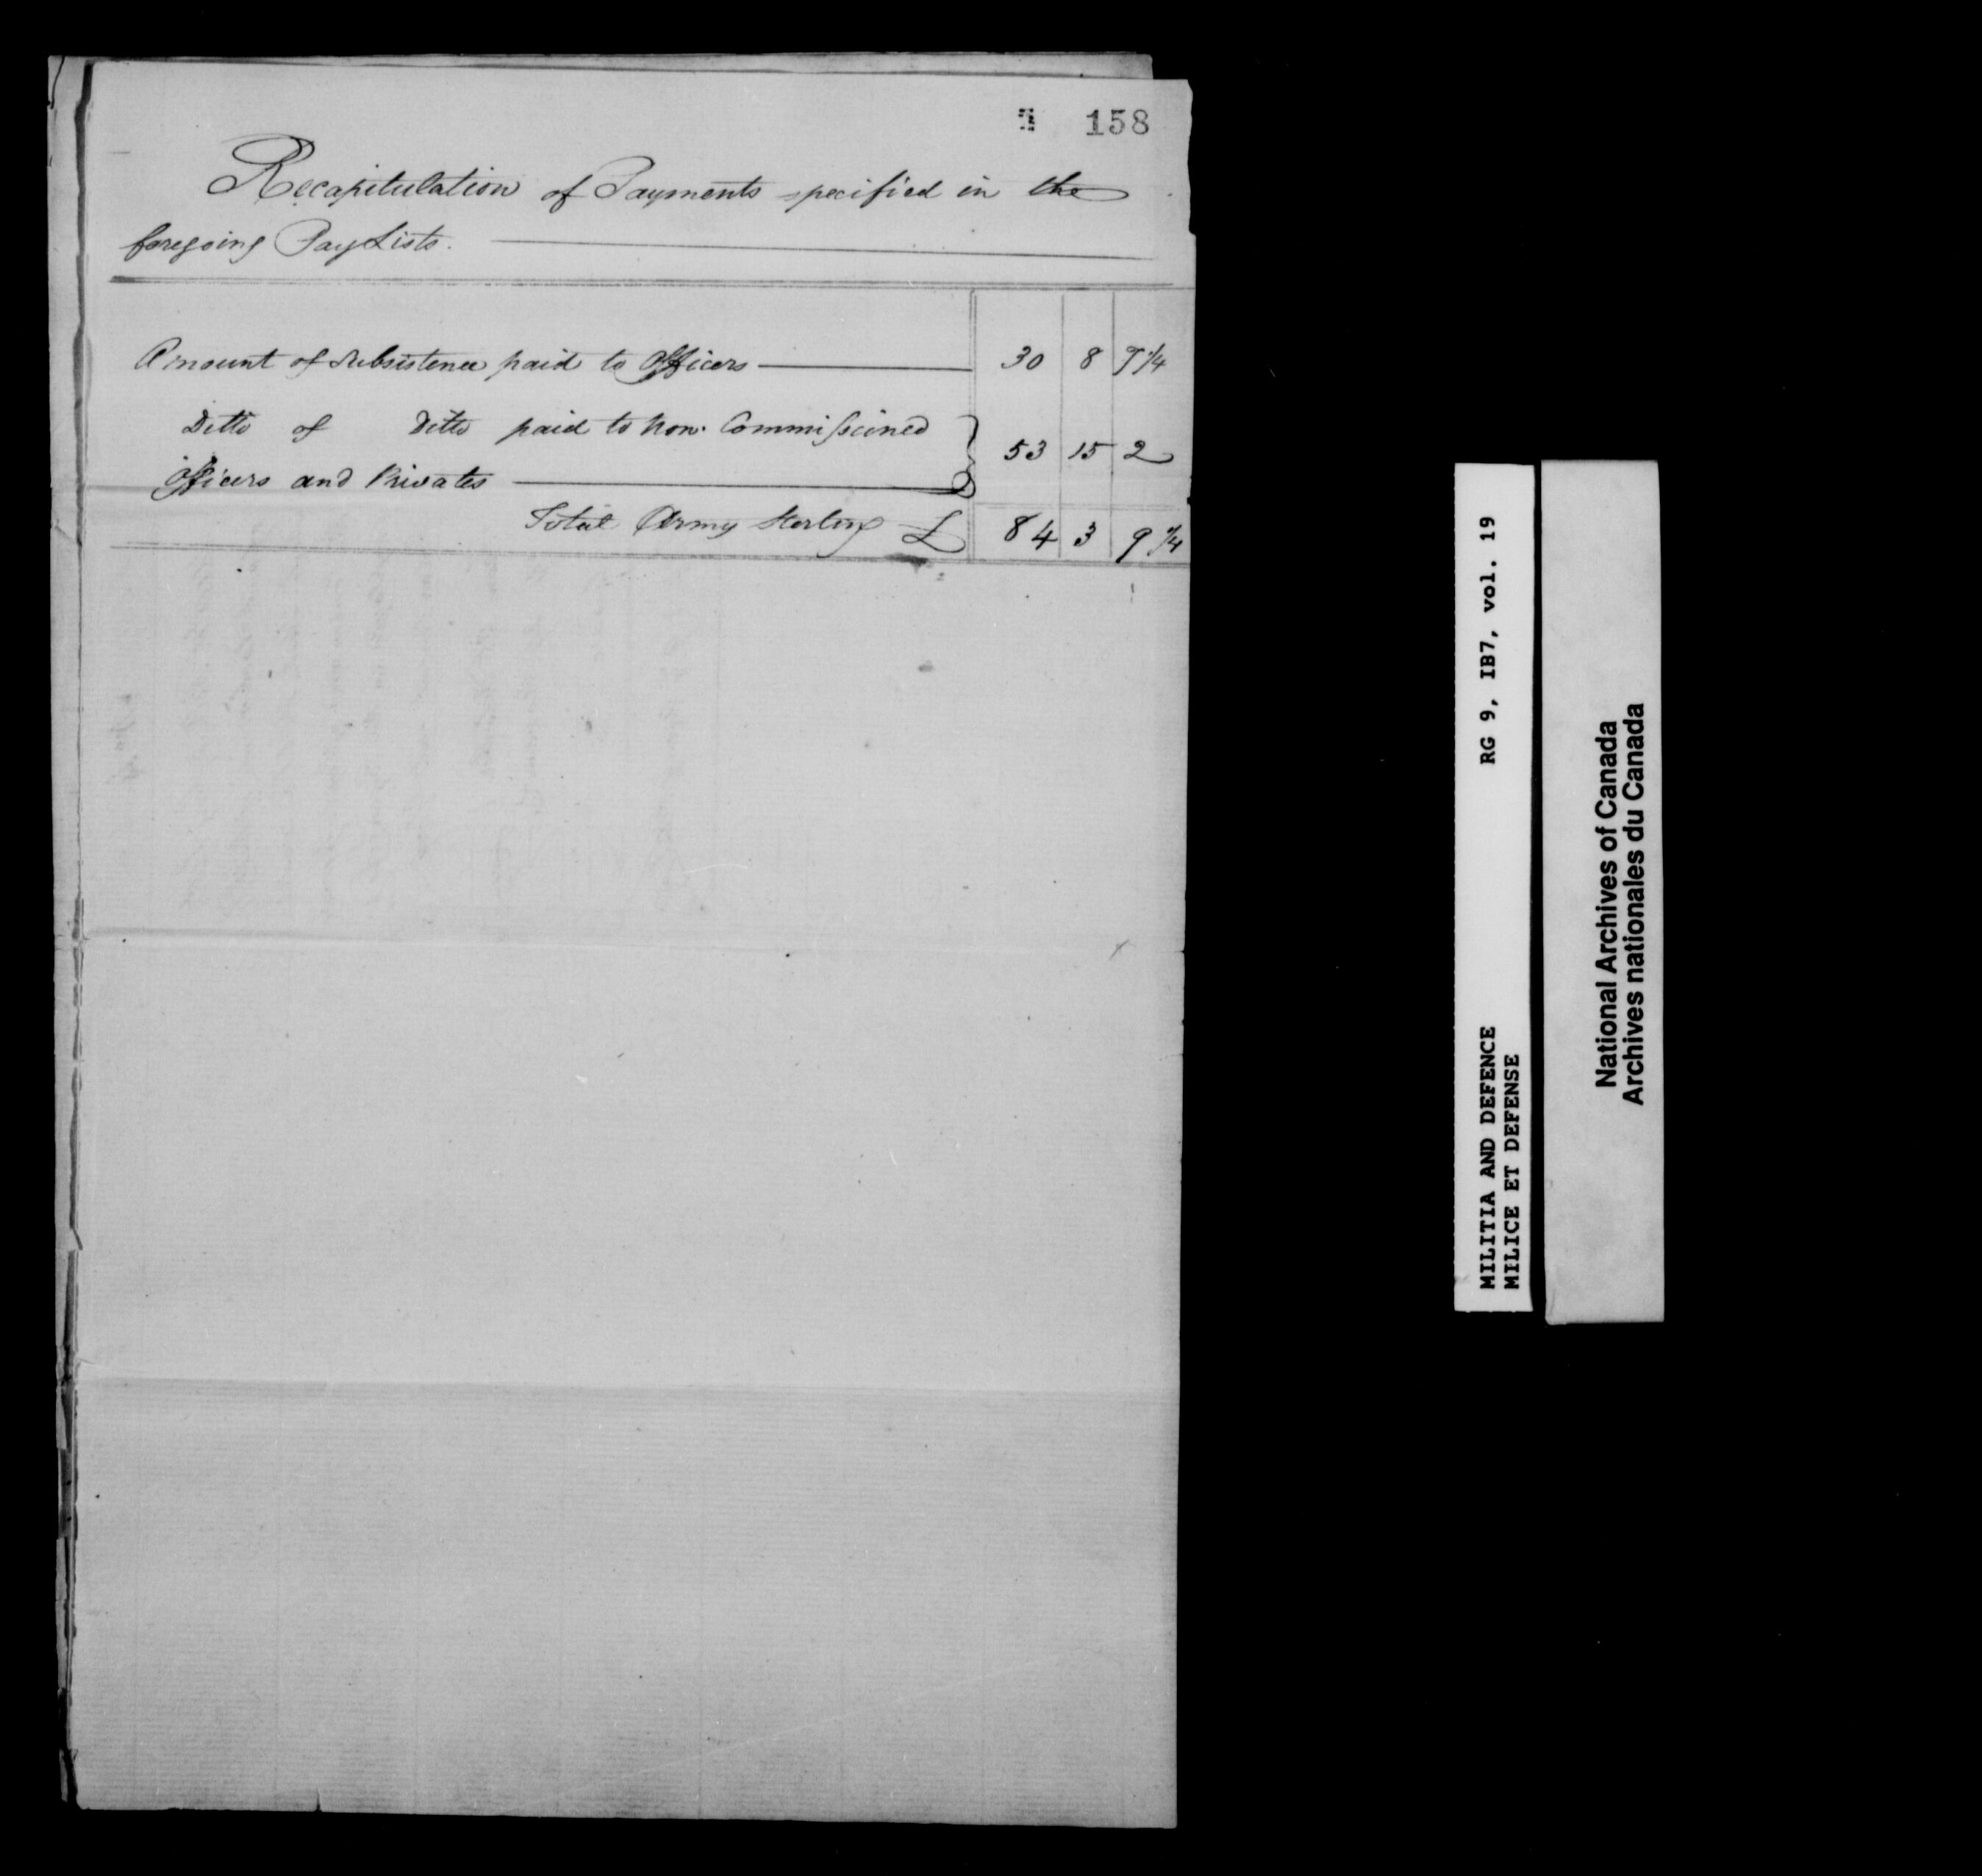 158
Recapitulation of Payments specified in the
foregoing Pay Lists.
Amount of Subsistence paid to Officers 30 8 7 1/4
Ditto of Ditto paid to Non Commissioned
Officers and Privates 53 15 2
Total Army Sterling £ 84 3 9 1/4
RG 9, IB7, vol. 19
MILITIA AND DEFENCE
MILICE ET DEFENSE
National Archives of Canada
Archives nationales du Canada